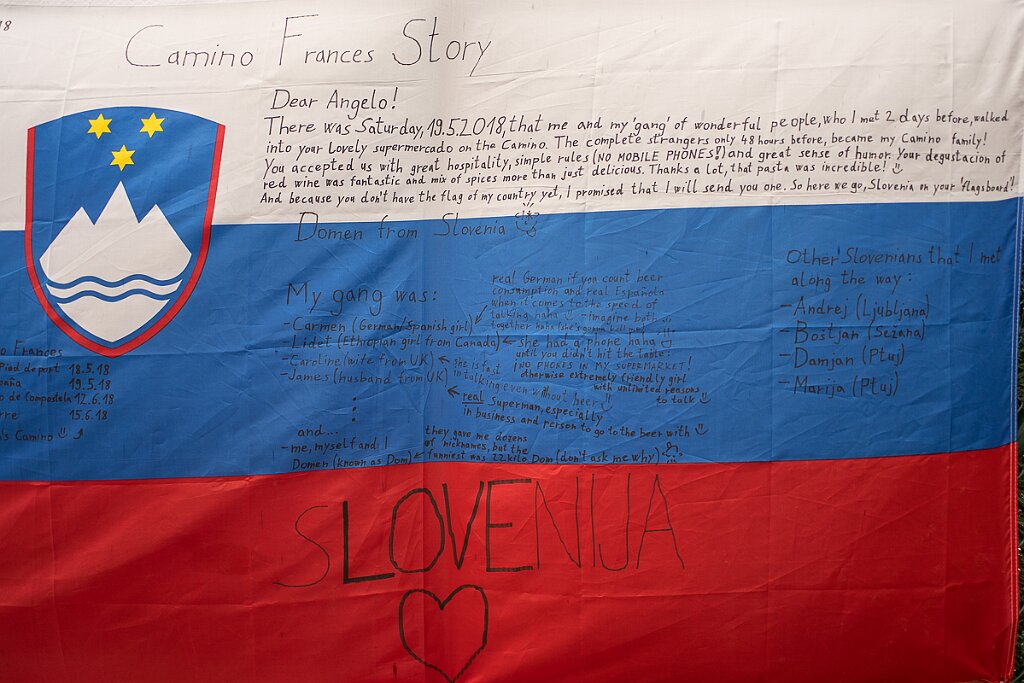 18
Camino Frances Story
Dear Angelo!
There was Saturday, 19.5.2018, that me and my 'gang' of wonderful people, who I met 2 days before, walked
into your lovely supermercado on the Camino. The complete strangers only 48 hours before, became my Camino family!
You accepted us with great hospitality, simple rules (NO MOBILE PHONES!) and great sense of humor. Your degustacion of
red wine was fantastic and mix of spices more than just delicious. Thanks a lot, that pasta was incredible!
And because you don't have the flag of my country yet, I promised that I will send you one. So here we go, Slovenia on your 'flagsboard'!
Domen from Slovenia
My gang was:
- Carmen (German/Spanish girl)
real German if you count beer
consumption and real Española
when it comes to the speed of
talking haha - imagine both
together haha (she's gonna kill me)
- Lidet (Ethiopian girl from Canada)
she had a phone haha
until you didn't hit the table:
!NO PHONES IN MY SUPERMARKET!
otherwise extremely friendly girl
with unlimited reasons
to talk
- Caroline (wife from UK)
she is fast
in talking even without beer
- James (husband from UK)
real Superman, especially
in business and person to go to the beer with
and...
- me, myself and I
Domen (known as Dom)
they gave me dozens
of nicknames, but the
funniest was 22 kilo Dom (don't ask me why)
Other Slovenians that I met
along the way:
- Andrej (Ljubljana)
- Boštjan (Sežana)
- Damjan (Ptuj)
- Marija (Ptuj)
o Frances
Pied de port 18.5.18
paña 19.5.18
o de Compostela 12.6.18
erre 15.6.18
's Camino
SLOVENIJA